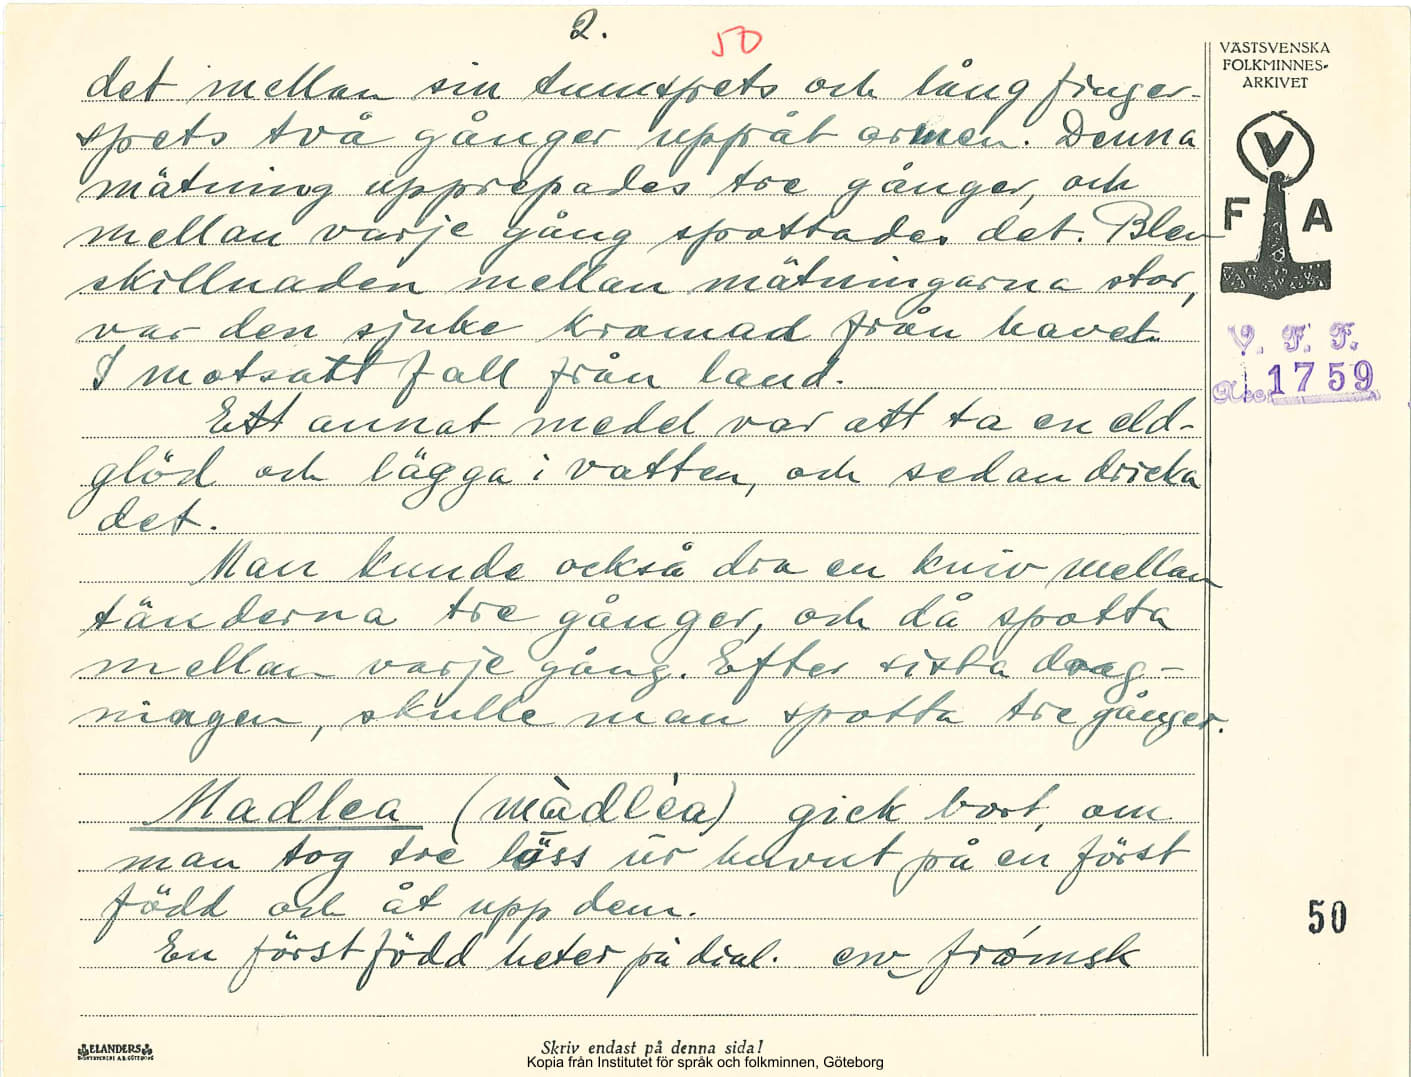 2.
50
VÄSTSVENSKA
FOLKMINNES-
ARKIVET
V
F A
V. F. F.
Acc. 1759
det mellan sin tumspets och lång finger-
spets två gånger uppåt armen. Denna
mätning upprepades tre gånger, och
mellan varje gång spottades det. Blev
skillnaden mellan mätningarna stor,
var den sjuke kramad från havet.
I motsatt fall från land.
Ett annat medel var att ta en eld-
glöd och lägga i vatten, och sedan dricka
det.
Man kunde också dra en kniv mellan
tänderna tre gånger, och då spotta
mellan varje gång. Efter sista drag-
ningen, skulle man spotta tre gånger.
Madlea (màdléa) gick bort, om
man tog tre löss ur huvut på en först
född och åt upp dem.
En förstfödd heter på dial. en frómsk
50
ELANDERS
Skriv endast på denna sida!
Kopia från Institutet för språk och folkminnen, Göteborg